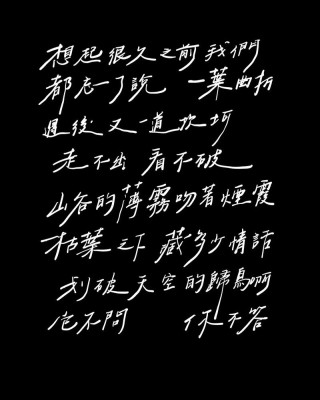 想起很久之前我們
都忘了說　一葉曲折
過後 又一道坎坷
走不出 看不破
山谷的薄霧吻著煙霞
枯葉之下 藏多少情話
划破天空的歸鳥啊
它不問　　你不答